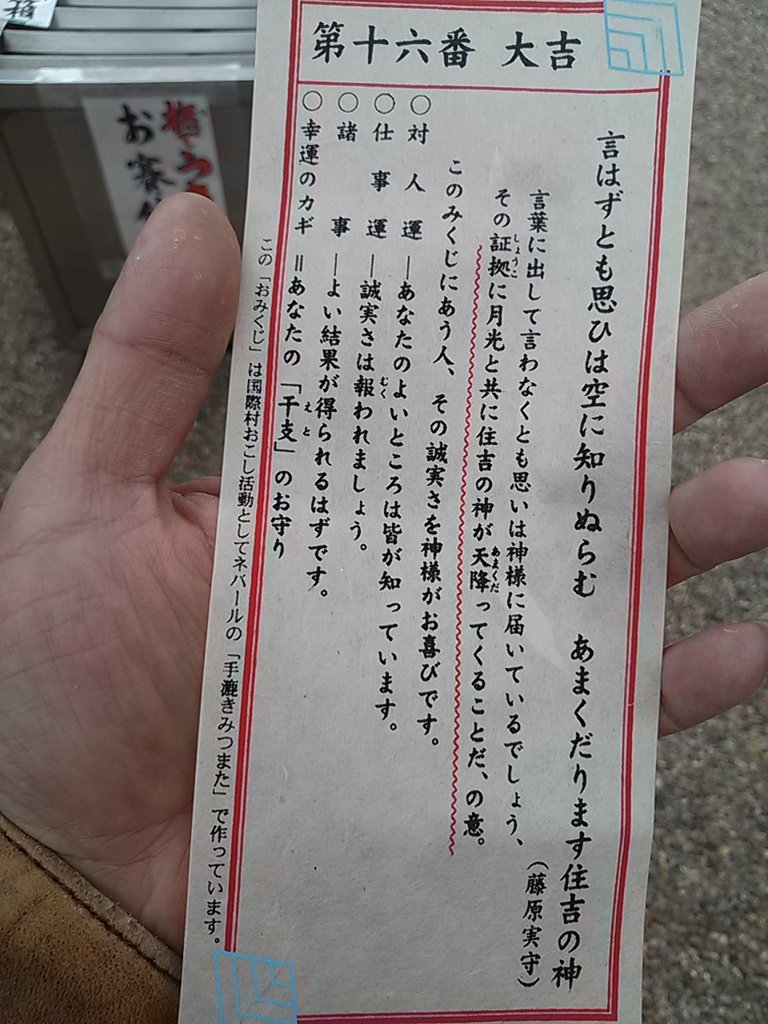 第十六番 大吉
言はずとも思ひは空に知りぬらむ あまくだります住吉の神
(藤原実守)
言葉に出して言わなくとも思いは神様に届いているでしょう、
その証拠に月光と共に住吉の神が天降ってくることだ、の意。
しょうこ
あまくだ
このみくじにあう人、その誠実さを神様がお喜びです。
○対人運―あなたのよいところは皆が知っています。
○仕事運―誠実さは報われましょう。
むく
○諸事―よい結果が得られるはずです。
○幸運のカギ=あなたの「干支」のお守り
えと
この「おみくじ」は国際村おこし活動としてネパールの「手漉きみつまた」で作っています。
箱
お賽